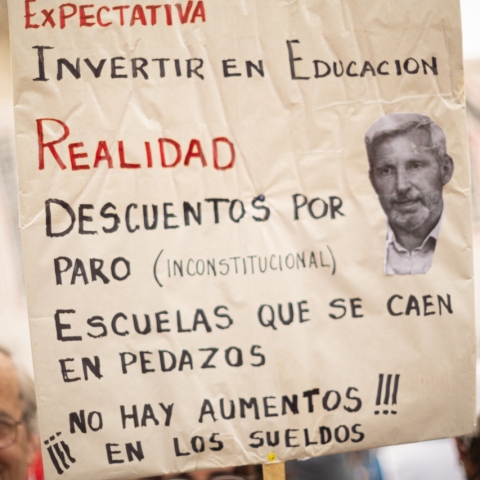 EXPECTATIVA
INVERTIR EN EDUCACION
REALIDAD
DESCUENTOS POR
PARO (INCONSTITUCIONAL)
ESCUELAS QUE SE CAEN
EN PEDAZOS
¡¡¡ NO HAY AUMENTOS !!!
EN LOS SUELDOS